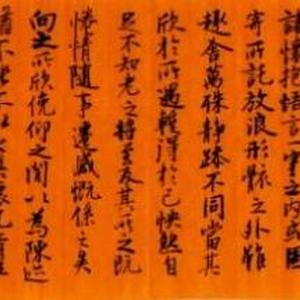 諸懷抱悟言一室之内或因
寄所託放浪形骸之外雖
趣舍萬殊靜躁不同當其
欣於所遇輙得於己快然自
足不知老之將至及其所之既
惓情隨事遷感慨係之矣
向之所欣俛仰之閒以為陳迹
猶不能不以之興懷況脩